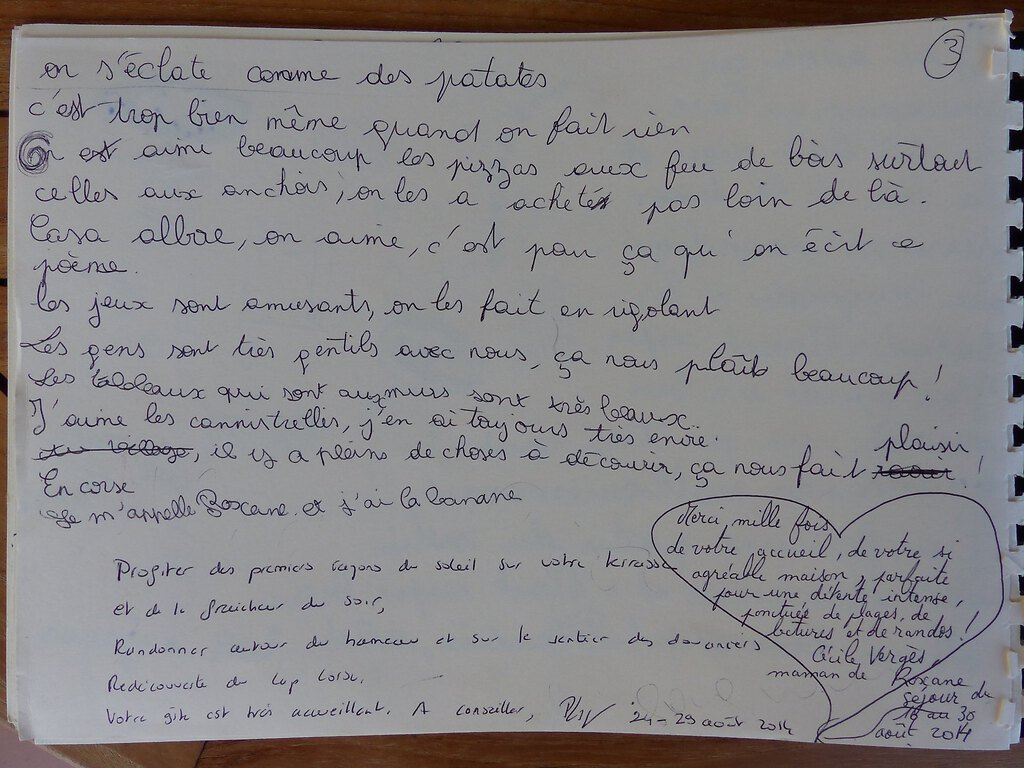 3
on s'éclate comme des patates
c'est trop bien même quand on fait rien
On aime beaucoup les pizzas aux feu de bois surtout
celles aux anchois, on les a acheté pas loin de là.
Casa albae, on aime, c'est pour ça qu'on écrit ce
poème.
les jeux sont amusants, on les fait en rigolant
Les gens sont très gentils avec nous, ça nous plaît beaucoup !
Les tableaux qui sont aux murs sont très beaux.
J'aime les cannistrelles, j'en ai toujours très envie.
au village, il y a pleins de choses à découvrir, ça nous fait plaisir !
En corse
Je m'appelle Roxane et j'ai la banane
Profiter des premiers rayons du soleil sur votre terrasse
et de la fraicheur du soir,
Randonner autour du hameau et sur le sentier des douaniers
Redécouverte du Cap Corse.
Votre gîte est très accueillant. A conseiller, 24-29 août 2014
Merci mille fois
de votre accueil, de votre si
agréable maison, parfaite
pour une détente intense,
ponctuée de plages, de
lectures et de randos !
Cécile Vergès,
maman de Roxane
séjour du
16 au 30
août 2014